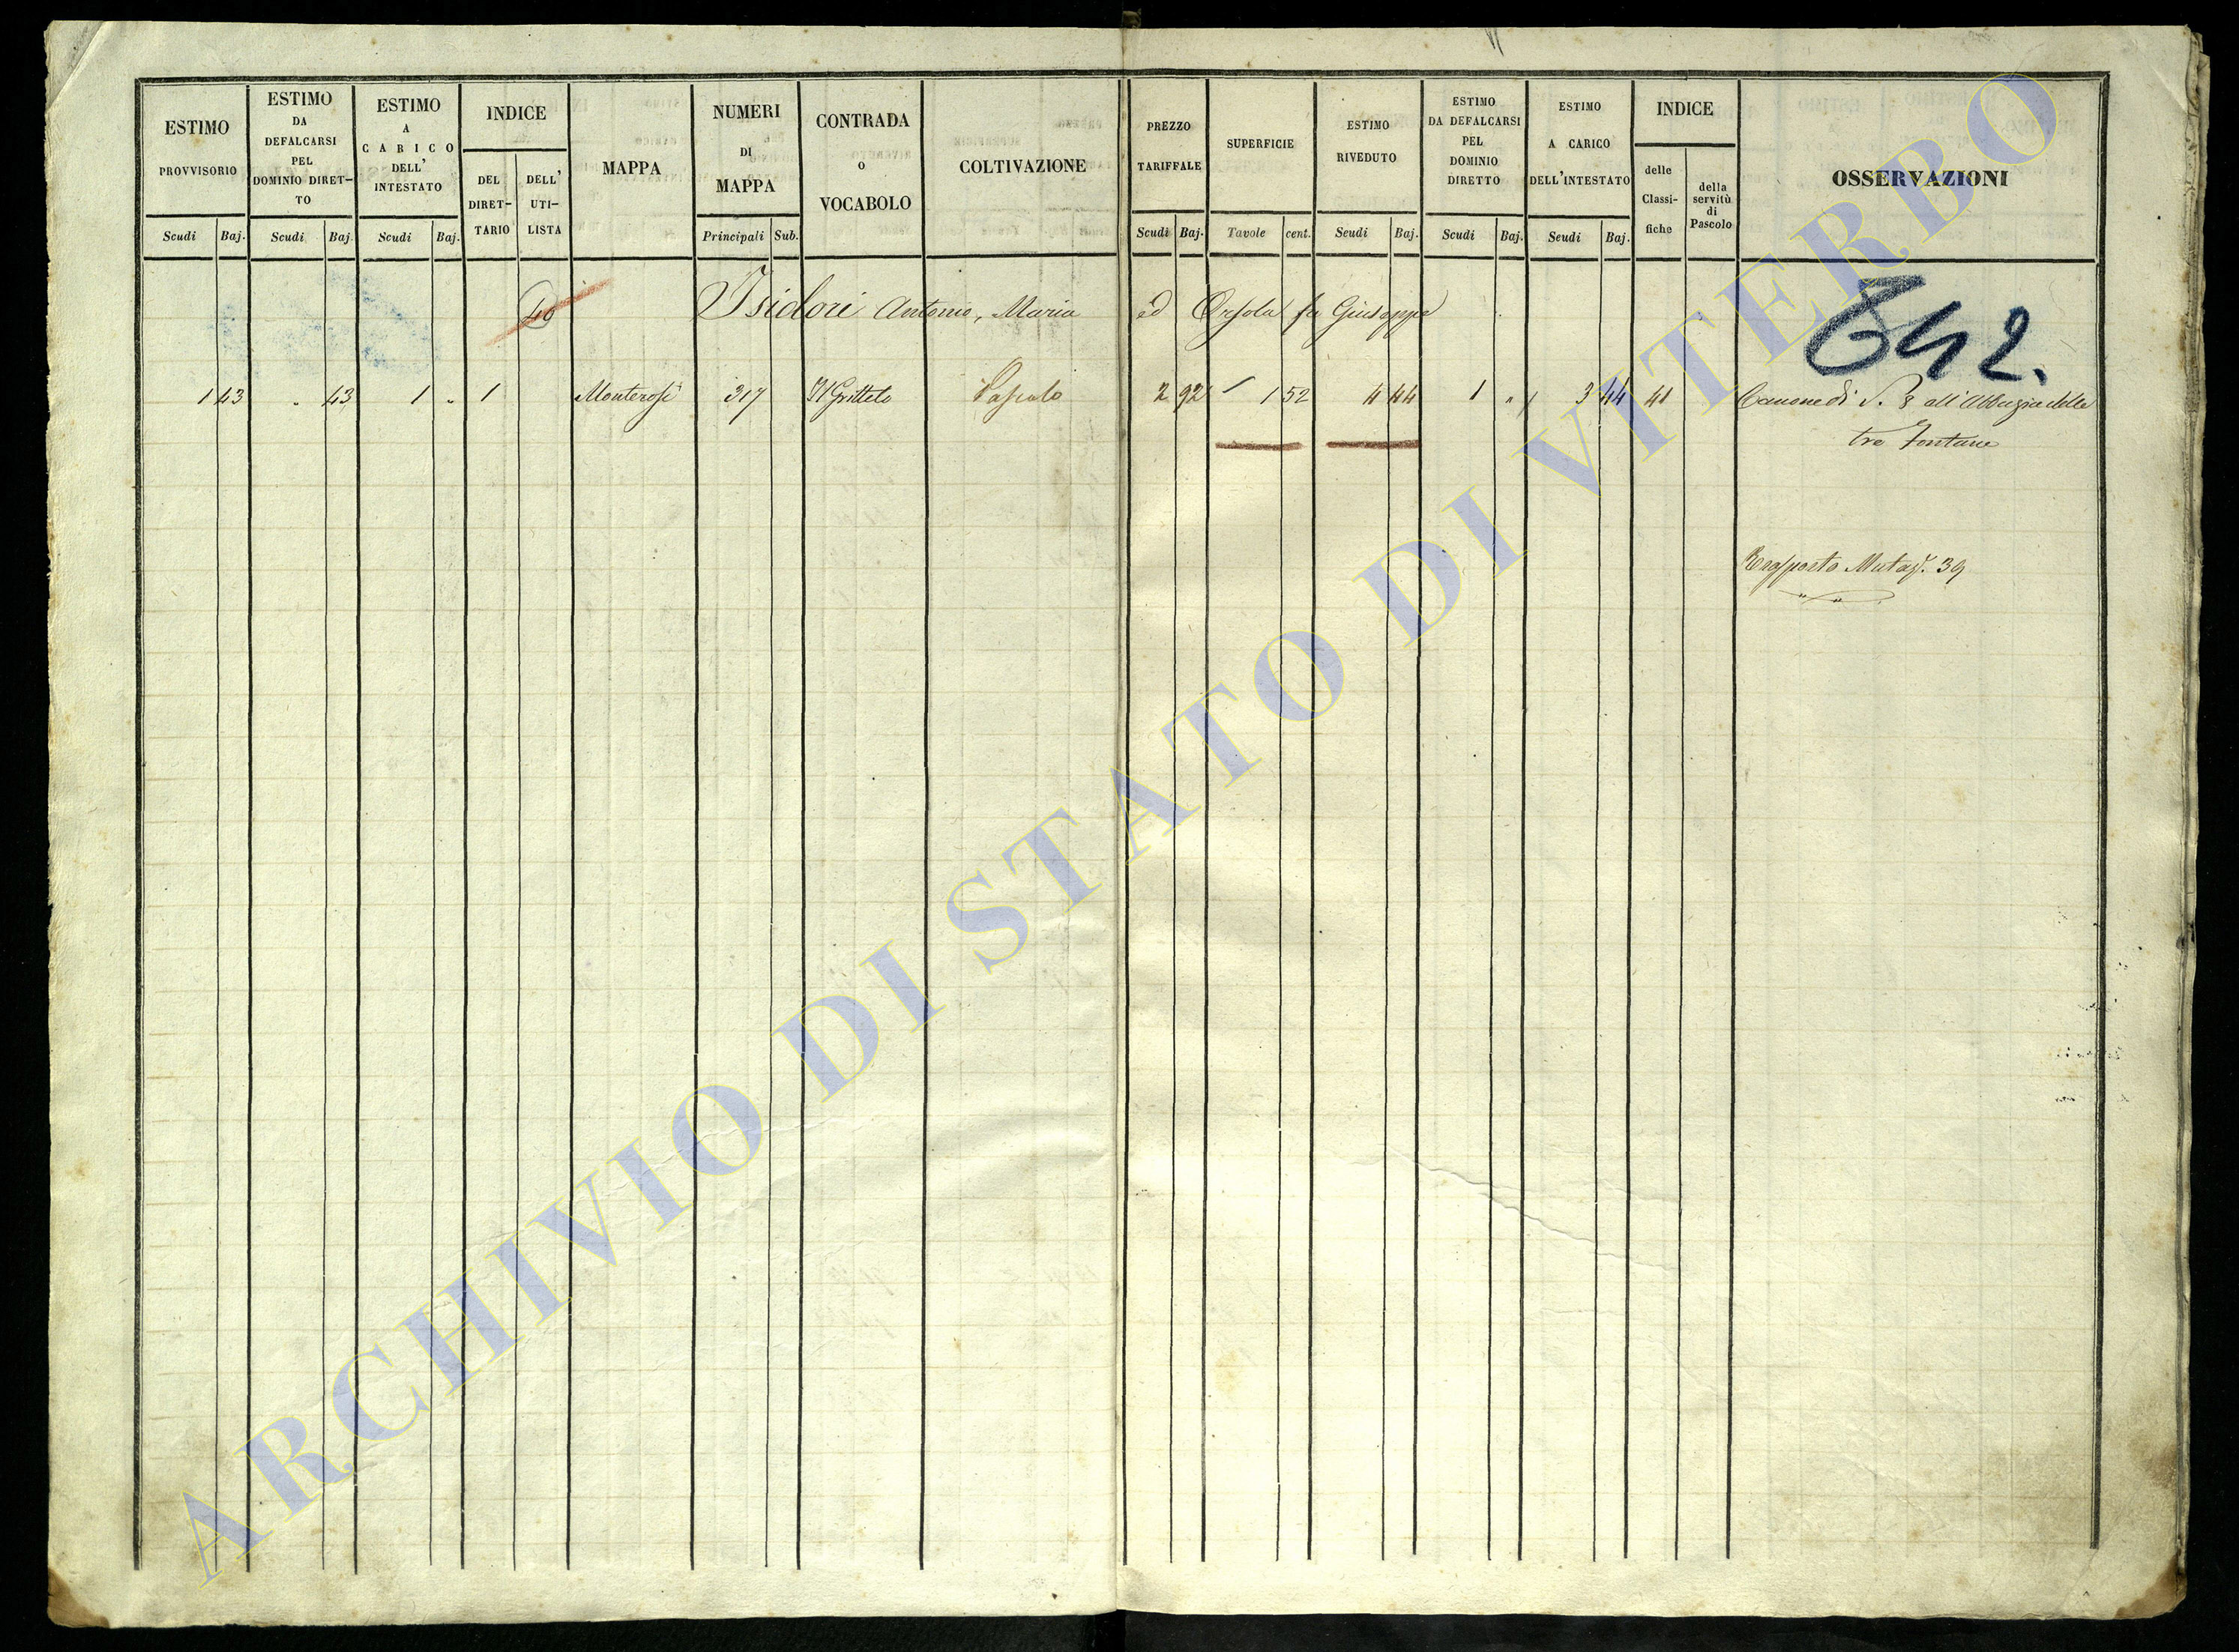 ESTIMO PROVVISORIO
ESTIMO DA DEFALCARSI PEL DOMINIO DIRET-TO
ESTIMO A CARICO DELL' INTESTATO
INDICE
DEL DIRET-TARIO
DELL' UTI-LISTA
MAPPA
NUMERI DI MAPPA
CONTRADA o VOCABOLO
COLTIVAZIONE
PREZZO TARIFFALE
SUPERFICIE
ESTIMO RIVEDUTO
ESTIMO DA DEFALCARSI PEL DOMINIO DIRETTO
ESTIMO A CARICO DELL'INTESTATO
INDICE
delle Classi-fiche
della servitù di Pascolo
OSSERVAZIONI
Scudi Baj. Scudi Baj. Scudi Baj. Principali Sub. Scudi Baj. Tavole cent. Scudi Baj. Scudi Baj. Scudi Baj.
Isidori Antonio, Maria ed Orsola fu Giuseppe
642.
1 43 " 43 1 " 1 Monterosi 317 Il Gritteto Pascolo 2 92 1 52 4 44 1 " 3 44 41 Canone di S. 8 all'Abbazia delle
tre Fontane
39
ARCHIVIO DI STATO DI VITERBO